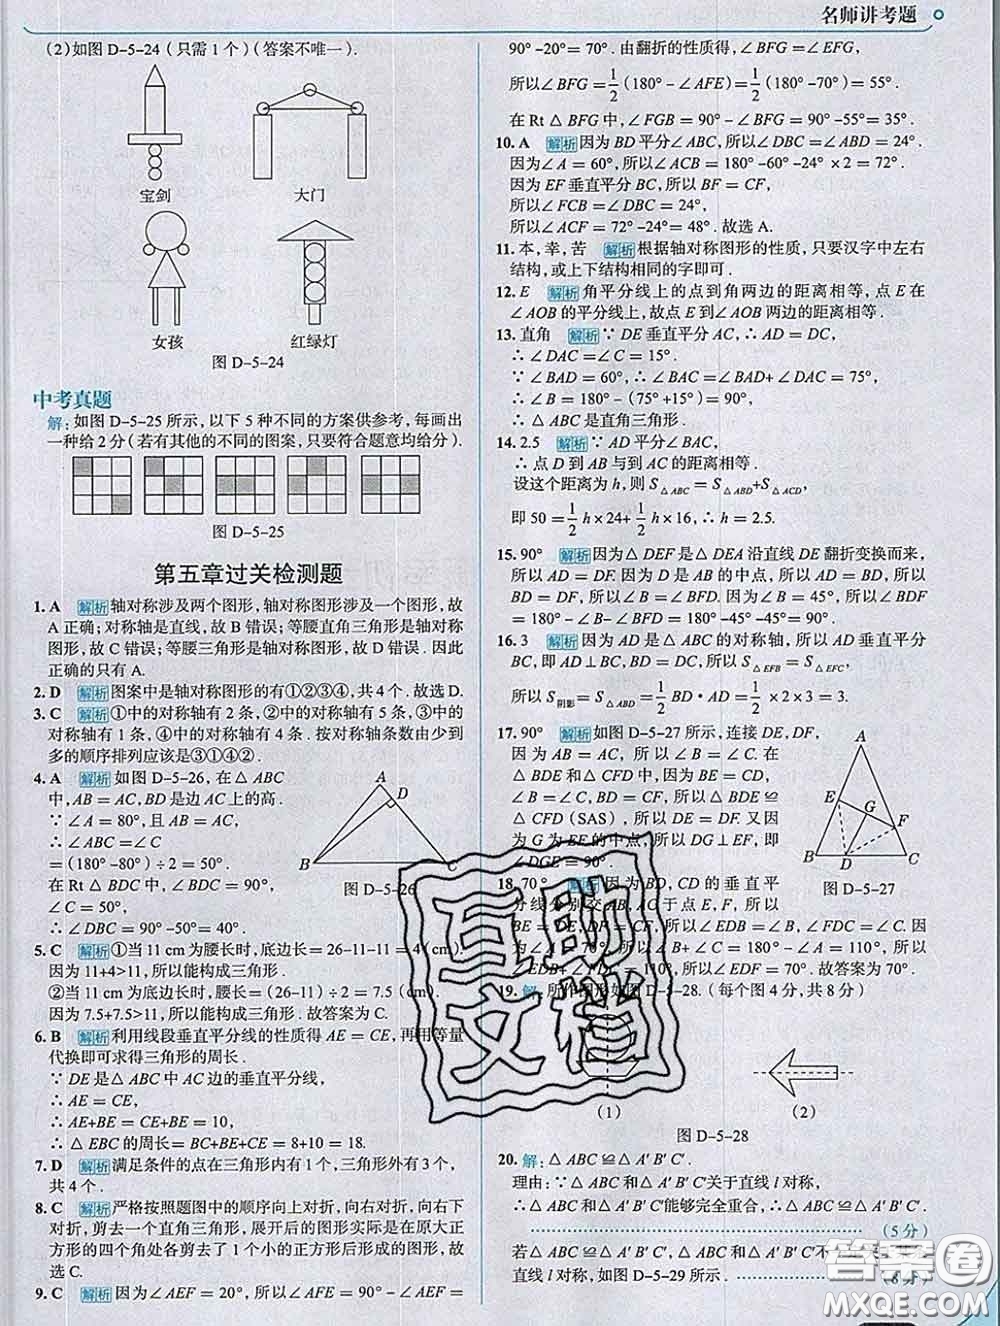 名师讲考题
(2)如图 D-5-24(只需 1 个)(答案不唯一).
宝剑
大门
女孩
红绿灯
图 D-5-24
中考真题
解:如图 D-5-25 所示,以下 5 种不同的方案供参考,每画出
一种给 2 分(若有其他的不同的图案,只要符合题意均给分).
图 D-5-25
第五章过关检测题
1. A 解析 轴对称涉及两个图形,轴对称图形涉及一个图形,故
A 正确;对称轴是直线,故 B 错误;等腰直角三角形是轴对称
图形,故 C 错误;等腰三角形是轴对称图形,故 D 错误. 因此
正确的只有 A.
2. D 解析 图案中是轴对称图形的有①②③④,共 4 个. 故选 D.
3. C 解析 ①中的对称轴有 2 条,②中的对称轴有 5 条,③中的
对称轴有 1 条,④中的对称轴有 4 条. 按对称轴条数由少到
多的顺序排列应该是③①④②.
4. A 解析 如图 D-5-26,在△ABC
中,AB = AC,BD 是边 AC 上的高.
∵∠A = 80°,且 AB = AC,
∴∠ABC =∠C
= (180° -80°) ÷2 = 50°.
在 Rt △BDC 中,∠BDC = 90°,
∠C = 50°,
∴∠DBC = 90° -50° = 40°.
A
D
B
C
图 D-5-26
5. C 解析 ①当 11 cm 为腰长时,底边长 = 26-11-11 = 4(cm).
因为 11+4>11,所以能构成三角形.
②当 11 cm 为底边长时,腰长 = (26-11) ÷2 = 7.5 (cm).
因为 7.5+7.5>11,所以能构成三角形. 故答案为 C.
6. B 解析 利用线段垂直平分线的性质得 AE = CE,再用等量
代换即可求得三角形的周长.
∵DE 是△ABC 中 AC 边的垂直平分线,
∴AE = CE,
∴AE+BE = CE+BE = 10,
∴△EBC 的周长 = BC+BE+CE = 8+10 = 18.
7. D 解析 满足条件的点在三角形内有 1 个,三角形外有 3 个,
共 4 个.
8. C 解析 严格按照题图中的顺序向上对折,向右对折,向右下
对折,剪去一个直角三角形,展开后的图形实际是在原大正
方形的四个角处各剪去了 1 个小的正方形后形成的图形. 故
选 C.
9. C 解析 因为∠AEF = 20°,所以∠AFE = 90° -∠AEF =
90° -20° = 70°. 由翻折的性质得,∠BFG =∠EFG,
所以∠BFG = 1/2 (180° -∠AFE) = 1/2 (180° -70°) = 55°.
在 Rt △BFG 中,∠FGB = 90° -∠BFG = 90° -55° = 35°.
10. A 解析 因为 BD 平分∠ABC,所以∠DBC =∠ABD = 24°.
因为∠A = 60°,所以∠ACB = 180° -60° -24° ×2 = 72°.
因为 EF 垂直平分 BC,所以 BF = CF,
所以∠FCB =∠DBC = 24°,
所以∠ACF = 72° -24° = 48°. 故选 A.
11. 本,幸,苦 解析 根据轴对称图形的性质,只要汉字中左右
结构,或上下结构相同的字即可.
12. E 解析 角平分线上的点到角两边的距离相等,点 E 在
∠AOB 的平分线上,故点 E 到∠AOB 两边的距离相等.
13. 直角 解析 ∵DE 垂直平分 AC,∴AD = DC,
∴∠DAC =∠C = 15°.
∵∠BAD = 60°,∴∠BAC =∠BAD+∠DAC = 75°,
∴∠B = 180° - (75° +15°) = 90°,
∴△ABC 是直角三角形.
14. 2.5 解析 ∵AD 平分∠BAC,
∴点 D 到 AB 与到 AC 的距离相等.
设这个距离为 h,则 S△ABC = S△ABD+S△ACD,
即 50 = 1/2 h×24+ 1/2 h×16,∴h = 2.5.
15. 90° 解析 因为△DEF 是△DEA 沿直线 DE 翻折变换而来,
所以 AD = DF. 因为 D 是 AB 边的中点,所以 AD = BD,所以
BD = DF,所以∠B =∠BFD. 因为∠B = 45°,所以∠BDF
= 180° -∠B-∠BFD = 180° -45° -45° = 90°.
16. 3 解析 因为 AD 是△ABC 的对称轴,所以 AD 垂直平分
BC,即 AD⊥BC,BD = DC,所以 S△EFB = S△EFC,
所以 S阴影 = S△ABD = 1/2 BD · AD = 1/2 ×2×3 = 3.
17. 90° 解析 如图 D-5-27 所示,连接 DE,DF,
因为 AB = AC,所以∠B =∠C. 在
△BDE 和△CFD 中,因为 BE = CD,
∠B =∠C,BD = CF,所以△BDE≌
△CFD (SAS),所以 DE = DF. 又因
为 G 为 EF 的中点,所以 DG⊥EF,即
∠DGE = 90°.
A
E
G
F
B
D
C
图 D-5-27
18. 70° 解析 因为 BD,CD 的垂直平
分线分别交 AB,AC 于点 E,F,所以
BE = DE,DF = CF,所以∠EDB =∠B,∠FDC =∠C. 因为
∠A = 70°,所以∠B+∠C = 180° -∠A = 110°,所以
∠EDB+∠FDC = 110°,所以∠EDF = 70°. 故答案为 70°.
19. 解:所作图形如图 D-5-28. (每个图 4 分,共 8 分)
(1)
(2)
图 D-5-28
20. 解:△ABC≌△A′B′C′.
理由:∵△ABC 和△A′B′C′关于直线 l 对称,
∴△ABC 和△A′B′C′能够完全重合,∴△ABC≌△A′B′C′.
(5 分)
若△ABC≌△A′B′C′,△ABC 和△A′B′C′不
直线 l 对称,如图 D-5-29 所示.
(8 分)
互助文档
答案卷
MXQE.COM